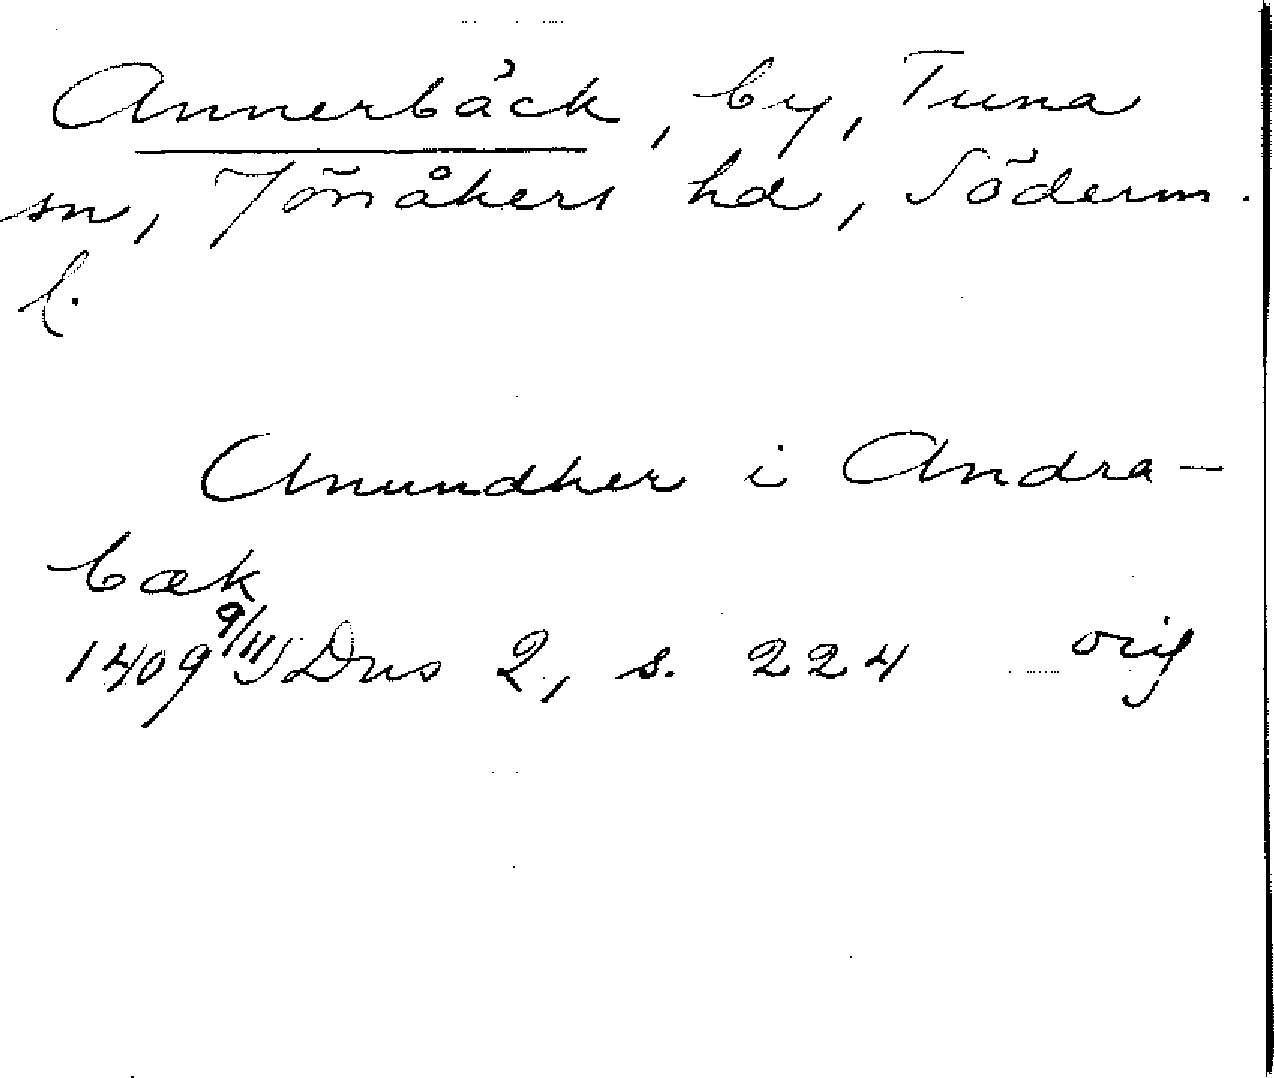 Annerbäck, by, Tuna
sn, Jönåkers hd, Söderm.
l.
Anundher i Andra-
bæk
1409 9/11 SDns 2, s. 224 orig